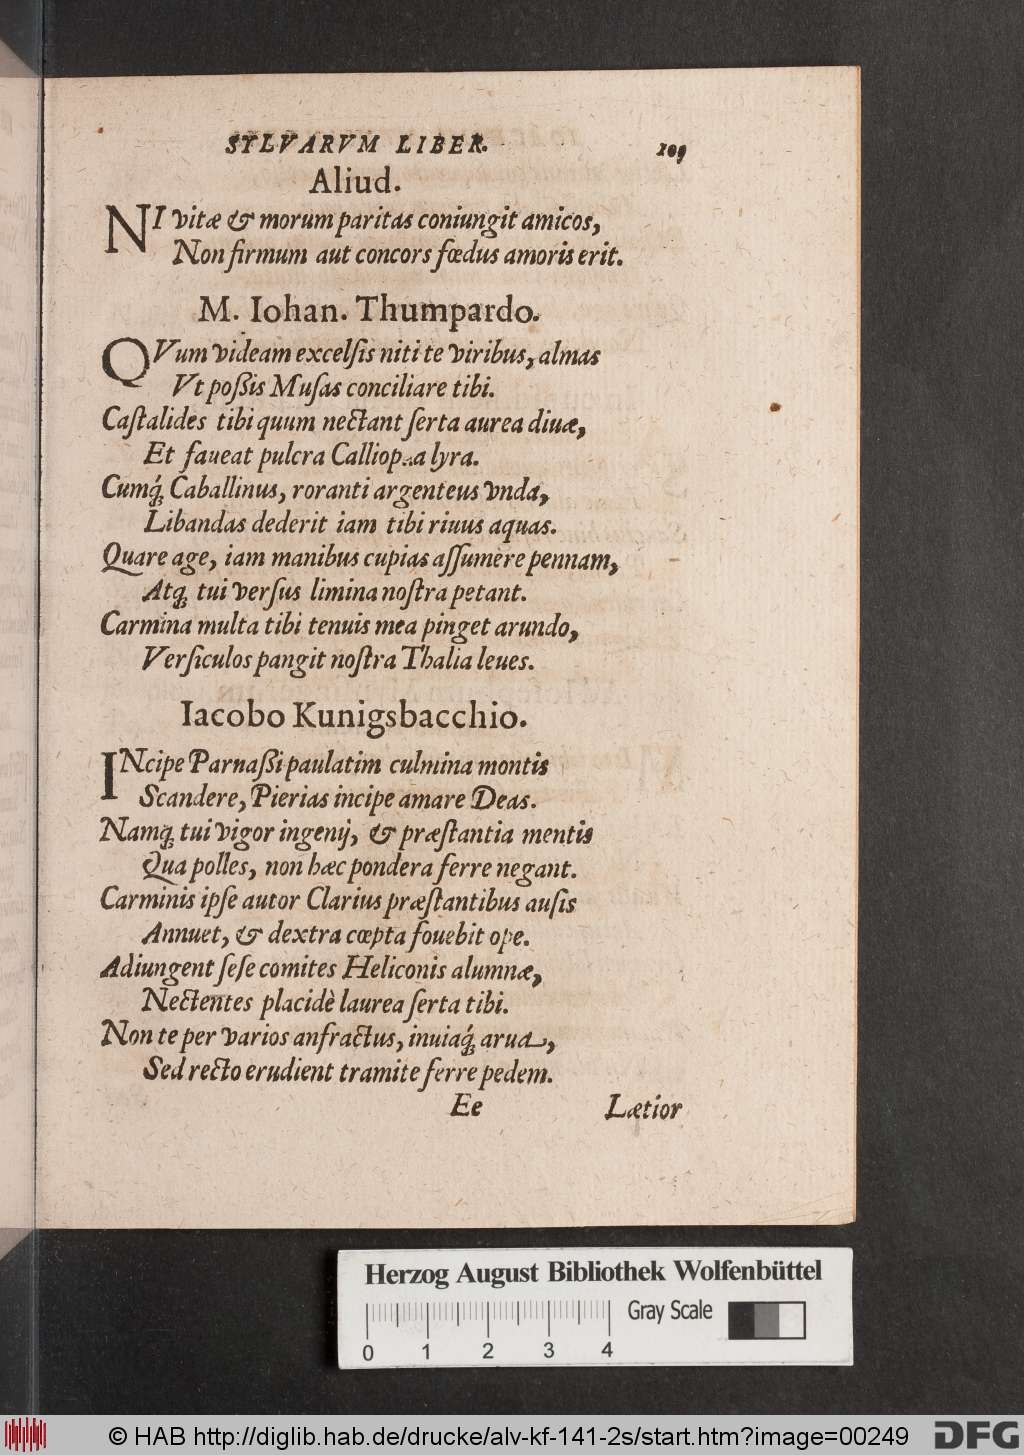 SYLVARVM LIBER. 109
Aliud.
NI vitæ & morum paritas coniungit amicos,
Non firmum aut concors fœdus amoris erit.
M. Iohan. Thumpardo.
QVum videam excelſis niti te viribus, almas
Vt poßis Muſas conciliare tibi.
Caſtalides tibi quum nectant ſerta aurea diuæ,
Et faueat pulcra Calliopæa lyra.
Cumq́; Caballinus, roranti argenteus vnda,
Libandas dederit iam tibi riuus aquas.
Quare age, iam manibus cupias aſſumere pennam,
Atq; tui verſus limina noſtra petant.
Carmina multa tibi tenuis mea pinget arundo,
Verſiculos pangit noſtra Thalia leues.
Iacobo Kunigsbacchio.
INcipe Parnaßi paulatim culmina montis
Scandere, Pierias incipe amare Deas.
Namq; tui vigor ingenij, & præſtantia mentis
Qua polles, non hæc pondera ferre negant.
Carminis ipſe autor Clarius præſtantibus auſis
Annuet, & dextra cœpta fouebit ope.
Adiungent ſeſe comites Heliconis alumnæ,
Nectentes placidè laurea ſerta tibi.
Non te per varios anfractus, inuiaq́; arua,
Sed recto erudient tramite ferre pedem.
Ee Lætior
Herzog August Bibliothek Wolfenbüttel
Gray Scale
0 1 2 3 4
© HAB http://diglib.hab.de/drucke/alv-kf-141-2s/start.htm?image=00249
DFG